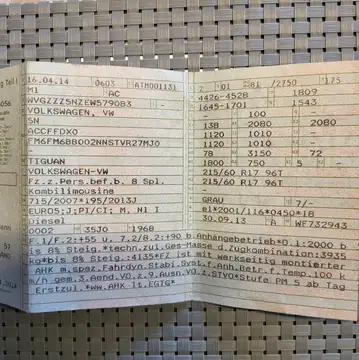 16.04.14 0603 ATH001131
M1 AC
WVGZZZ5NZEW579083 -
VOLKSWAGEN, VW
5N
ACCFFDX0
FM6FM6BB002NNSTVR27MJ0
TIGUAN
VOLKSWAGEN-VW
Fz.z.Pers.bef.b. 8 Spl.
Kombilimousine
715/2007*195/2013J
EURO5;J;PI/CI; M, N1 I
Diesel
0002 35J0 1968
2 01 81 /2750 175
4426-4528 1809
1645-1701 1543
- 100 -
138 2080 2080
1120 1010 -
1120 1010 -
78 3150 72
1800 750 5 -
215/60 R17 96T
215/60 R17 96T
-
GRAU 7/-
e1*2001/116*0450*18
30.09.13 A WF732943
F.1/F.2:+55 u. 7.2/8.2:+90 b.Anhangebetrieb*O.1:2000 b
is 8% Steig.*techn.zul.Ges-Masse d.Zugkombination:3935
kg*bis 8% Steig.:4135*FZ ist mit werkseitig montierter
AHK m.spez.Fahrdyn.Stabi.Syst.f.Anh.Betr.f.Temp.100 k
m/h gem.3.Aend.VO.z.9.Ausn.VO.z.STVO*Stufe PM 5 ab Tag
Erstzul.*ww.AHK lt.EGTG*